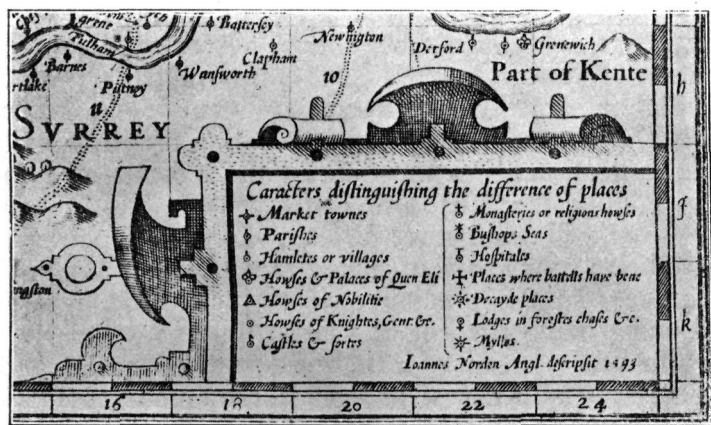 grene
Fulham
Battersey
Newington
Detford
Grenewich
Clapham
Barnes
Wansworth
10
Part of Kente
h
rtlake
Putnøy
11
SVRREY
Caracters distinguishing the difference of places
Market townes
Parishes
Hamletes or villages
Howses & Palaces of Quen Eli
Howses of Nobilitie
Howses of Knightes, Gent. &c.
Castles & fortes
Monasteries or religious howses
Bushops Seas
Hospitales
Places where battells have bene
Decayde places
Lodges in forestes chases &c.
Mylles.
Ioannes Norden Angl. descripsit 1593
f
ngston
k
16
18
20
22
24